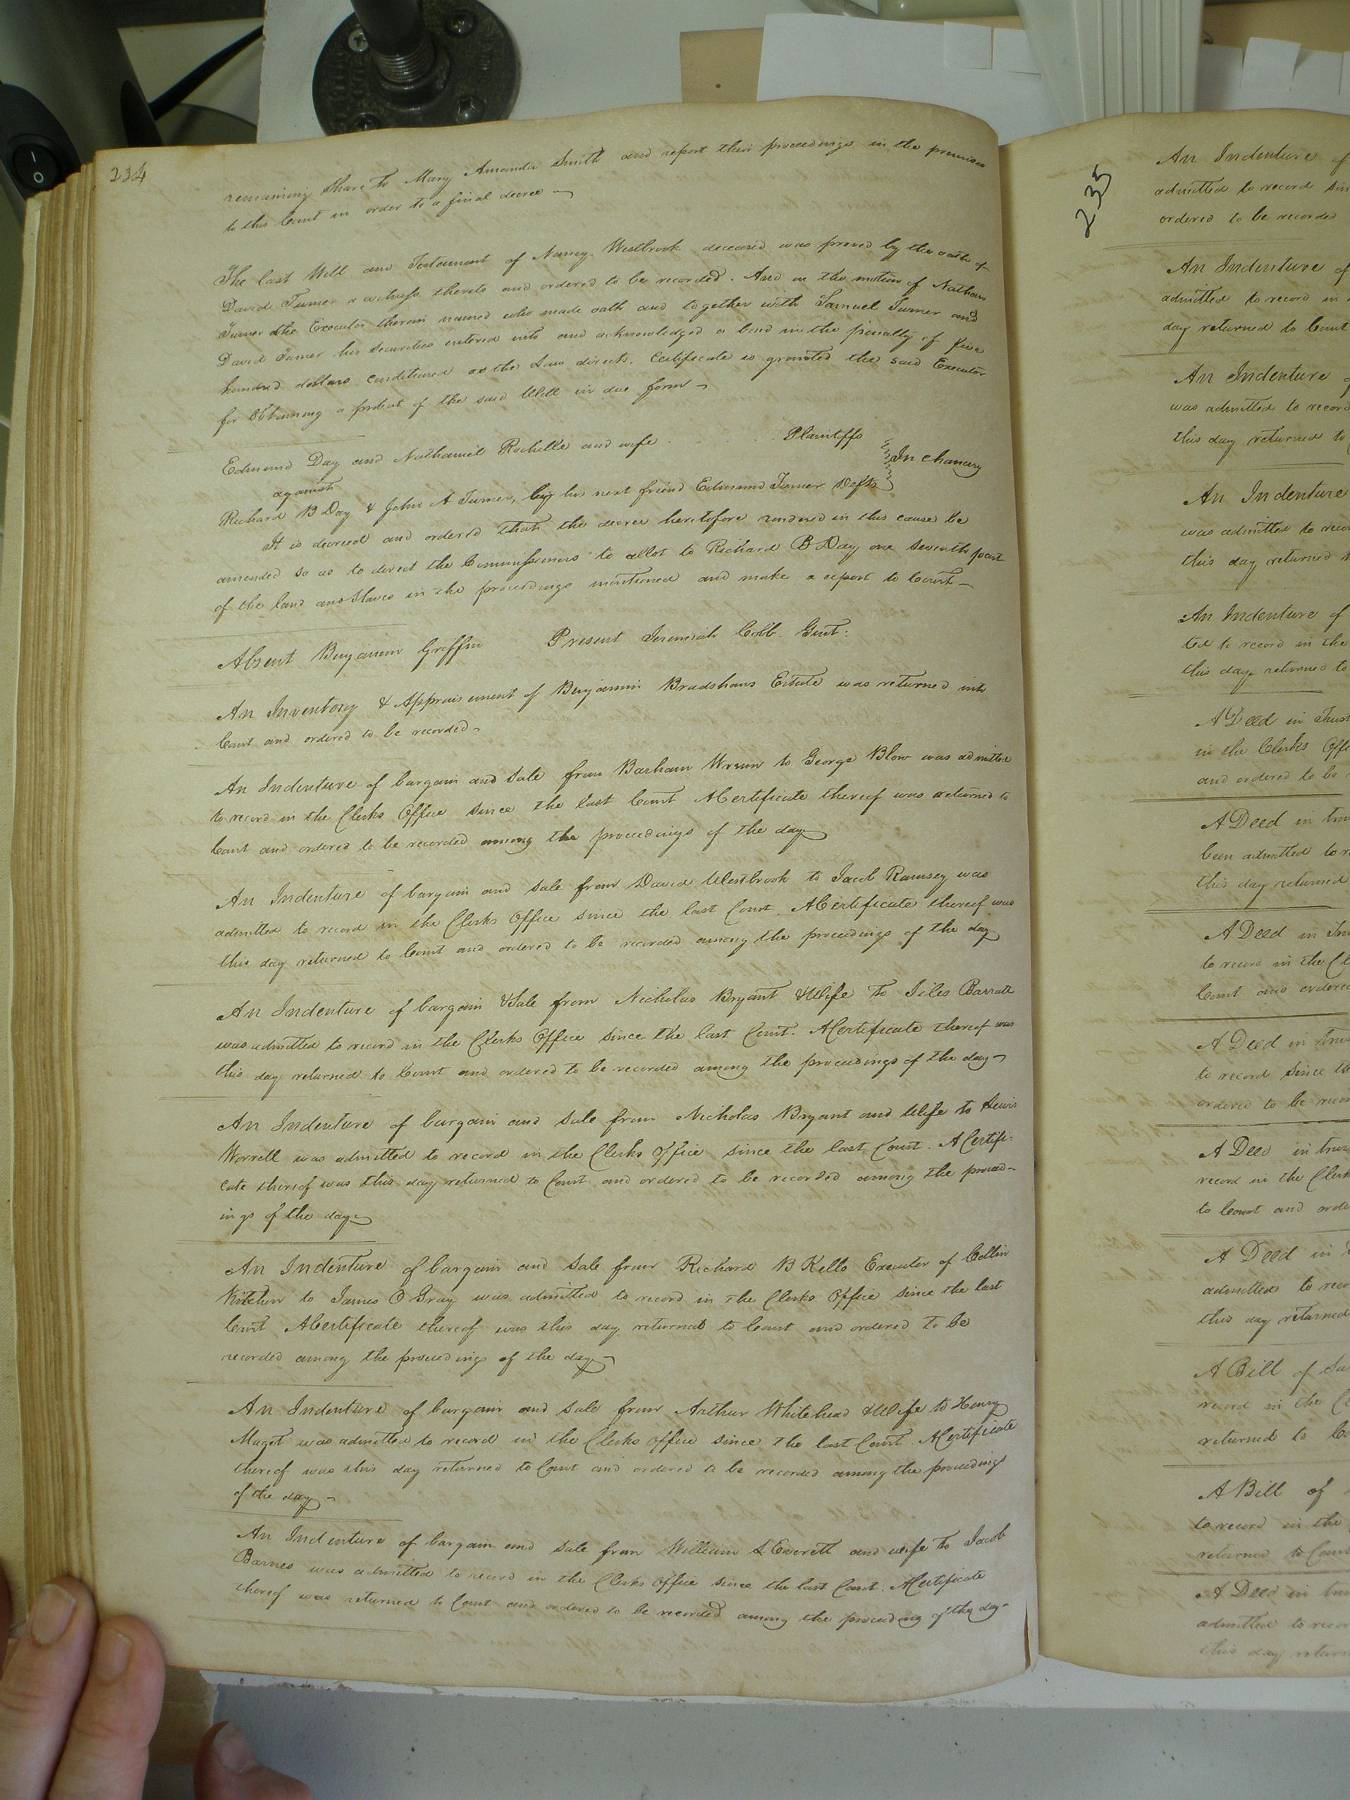 234
remaining share to Mary Amanda Smith and report their proceedings in the premises
to this Court in order to a final decree
The last Will and Testament of Nancy Westbrook deceased was proved by the oath of
David Turner a witness thereto and ordered to be recorded. And on the motion of Nathan
Turner the Executor therein named who made oath and together with Samuel Turner and
David Turner his Securities entered into and acknowledged a bond in the penalty of five
hundred dollars conditioned as the Law directs. Certificate is granted the said Executor
for Obtaining a probat of the said Will in due form
Edmund Day and Nathaniel Rochelle and wife Plaintffs
against
In Chancery
Richard B Day & John A Turner, by his next friend Edmund Turner Defts
It is decreed and ordered that the decree heretofore rendered in this cause be
amended so as to direct the Commissioners to allot to Richard B Day one seventh part
of the land and Slaves in the proceedings mentioned and make a report to Court
Absent Benjamin Griffin Present Jeremiah Cobb Gent.
An Inventory & Appraisement of Benjamin Bradshaws Estate was returned into
Court and ordered to be recorded
An Indenture of bargain and sale from Barham Wrenn to George Blow was admitted
to record in the Clerks Office since the last Court A Certificate thereof was returned to
Court and ordered to be recorded among the proceedings of the day
An Indenture of bargain and sale from David Westbrook to Jacob Ramsey was
admitted to record in the Clerks Office since the last Court. A Certificate thereof was
this day returned to Court and ordered to be recorded among the proceedings of the day
An Indenture of bargain & Sale from Nicholas Bryant & Wife to Giles Barratt
was admitted to record in the Clerks Office since the last Court. A Certificate thereof was
this day returned to Court and ordered to be recorded among the proceedings of the day
An Indenture of bargain and sale from Nicholas Bryant and Wife to Lewis
Worrell was admitted to record in the Clerks Office since the last Court. A Certifi-
cate thereof was this day returned to Court and ordered to be recorded among the proceed-
ings of the day
An Indenture of bargain and sale from Richard B Kello Executor of Collin
Kitchen to James O Gray was admitted to record in the Clerks Office since the last
Court A Certificate thereof was this day returned to Court and ordered to be
recorded among the proceedings of the day
An Indenture of bargain and sale from Arthur Whitehead & Wife to Henry
Maget was admitted to record in the Clerks Office since the last Court. A Certificate
thereof was this day returned to Court and ordered to be recorded among the proceedings
of the day
An Indenture of bargain and sale from William L Everett and wife to Jacob
Barnes was admitted to record in the Clerks Office since the last Court. A Certificate
thereof was returned to Court and ordered to be recorded among the proceeding of the day
235
An Indenture of
admitted to record sin
ordered to be recorded
An Indenture of
admitted to record in
day returned to Court
An Indenture
was admitted to record
this day returned to
An Indenture
was admitted to reco
this day returned
An Indenture of
ted to record in the
this day returned to
A Deed in Trust
in the Clerks Offi
and ordered to be
A Deed in tru
been admitted to r
this day returned
A Deed in Tru
to record in the Cl
Court and ordered
A Deed in trus
to record since th
ordered to be recor
A Deed in trus
record in the Clerk
to Court and orde
A Deed in
admitted to reco
this day returned
A Bill of Sa
record in the Cl
returned to Co
A Bill of
to record in the
returned to Cour
A Deed in tru
admitted to reco
this day return